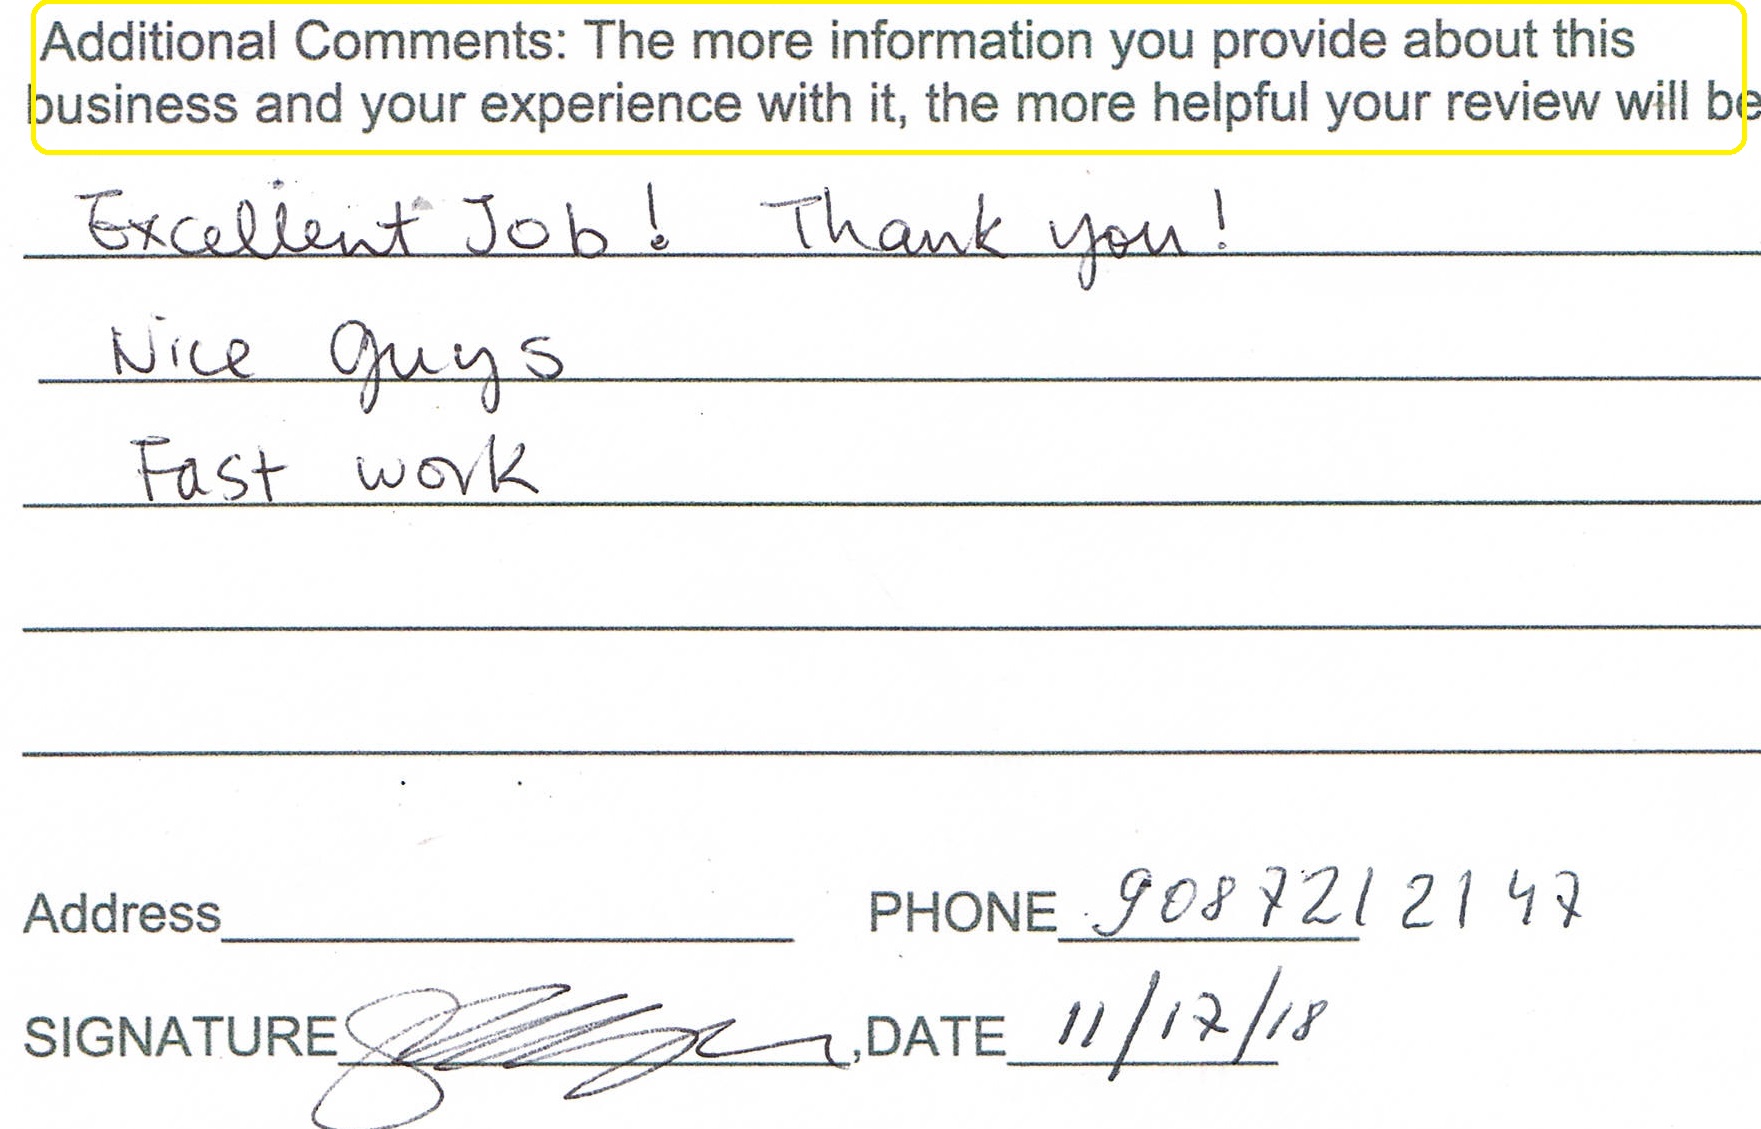 Additional Comments: The more information you provide about this
business and your experience with it, the more helpful your review will be
Excellent Job! Thank you!
Nice guys
Fast work
Address PHONE 9087212147
SIGNATURE ,DATE 11/17/18